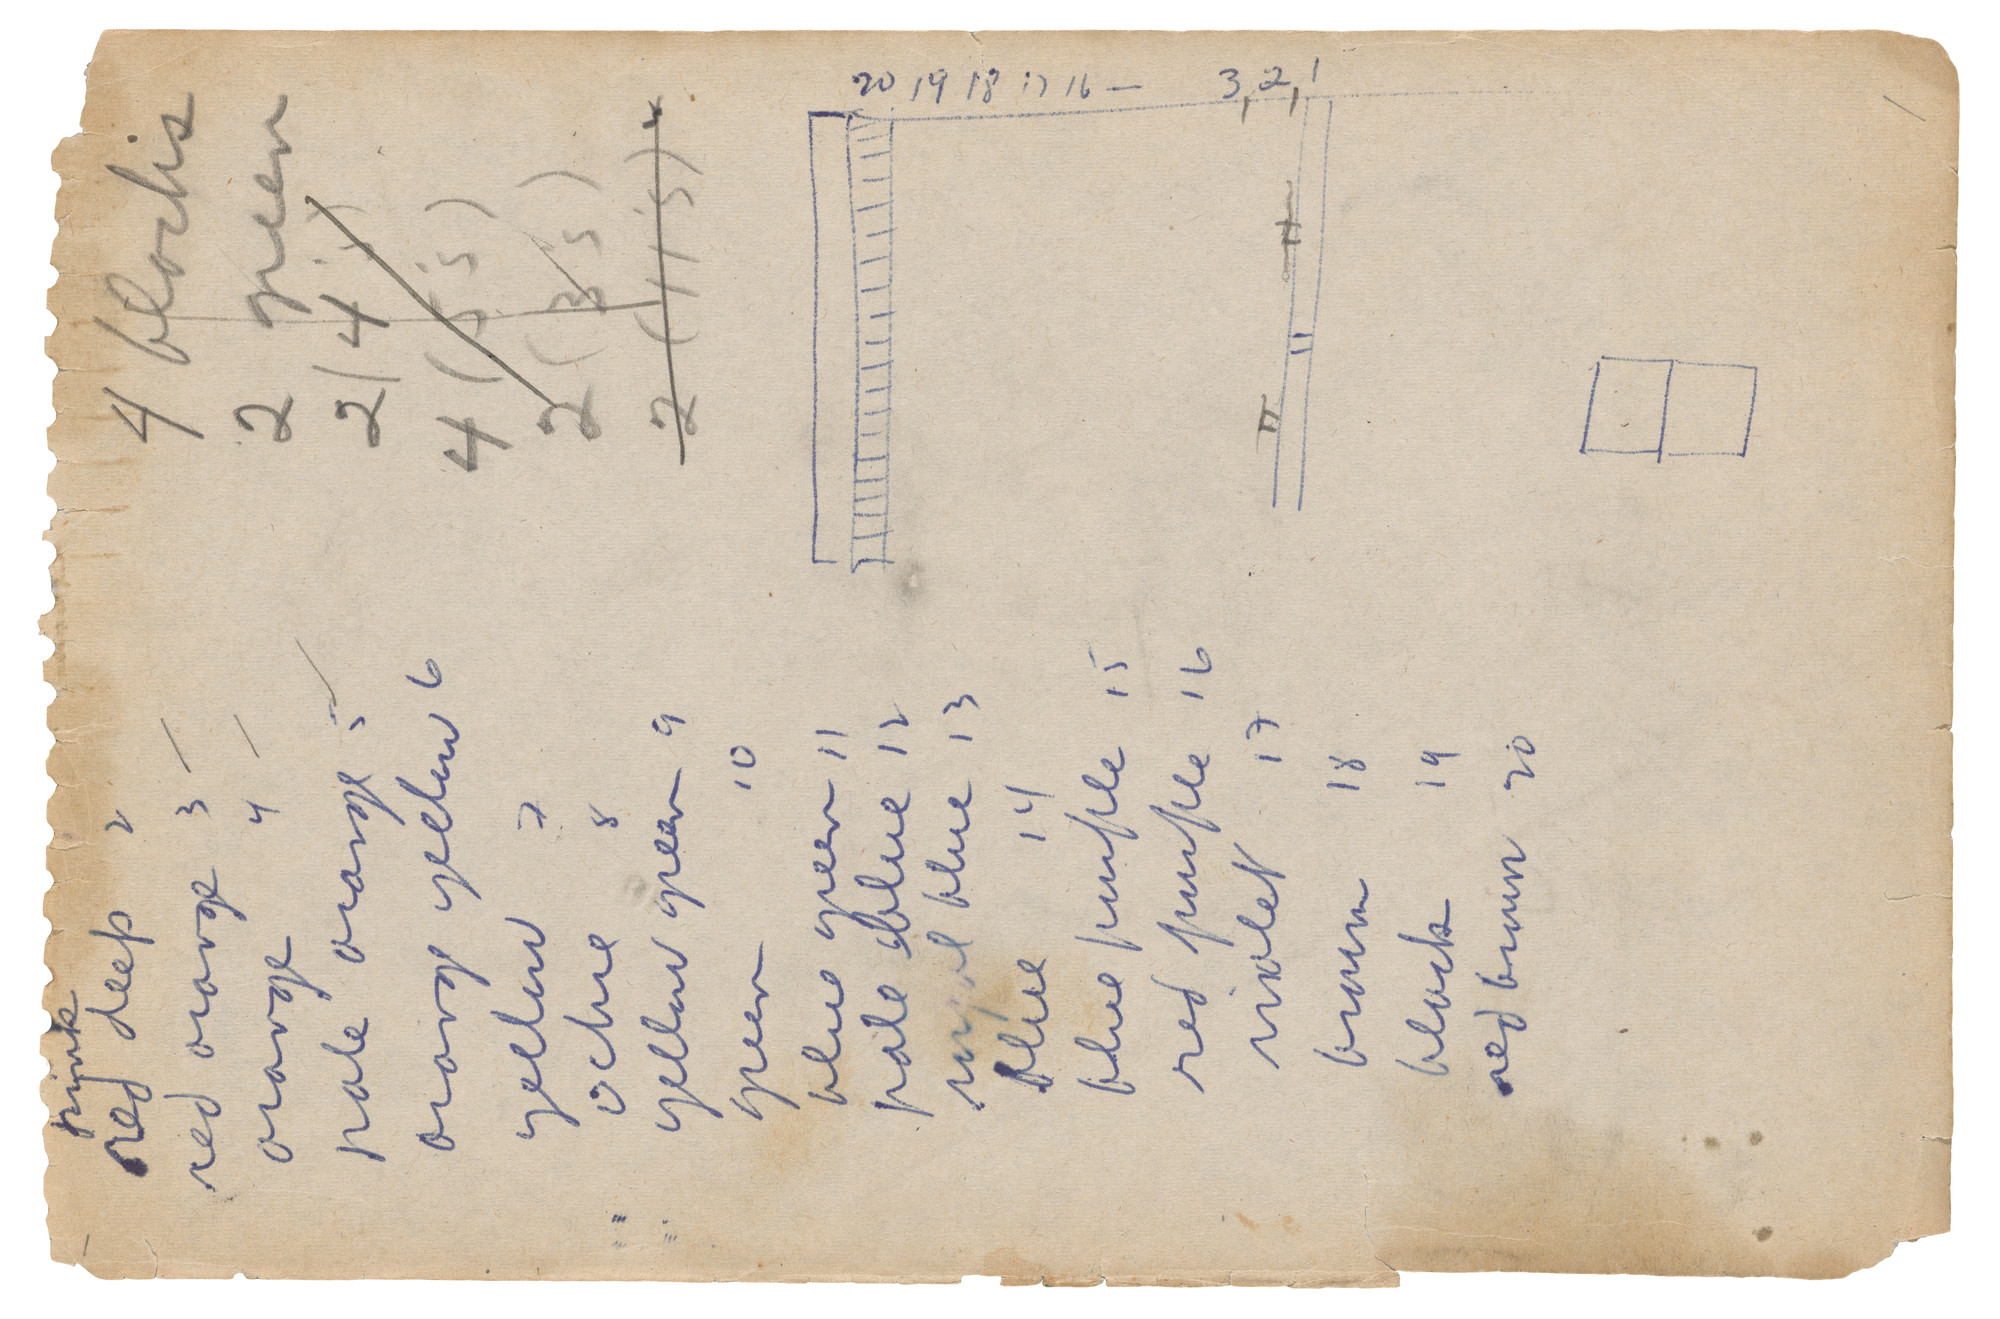 4 blocks
2 green
2 (4's)
4 (5's)
2 (3's)
2 (11's)
20 19 18 17 16 — 3, 2, 1
pink
red deep 2
red orange 3
orange 4
pale orange 5
orange yellow 6
yellow 7
ochre 8
yellow green 9
green 10
blue green 11
pale blue 12
royal blue 13
blue 14
blue purple 15
red purple 16
violet 17
brown 18
black 19
red brown 20